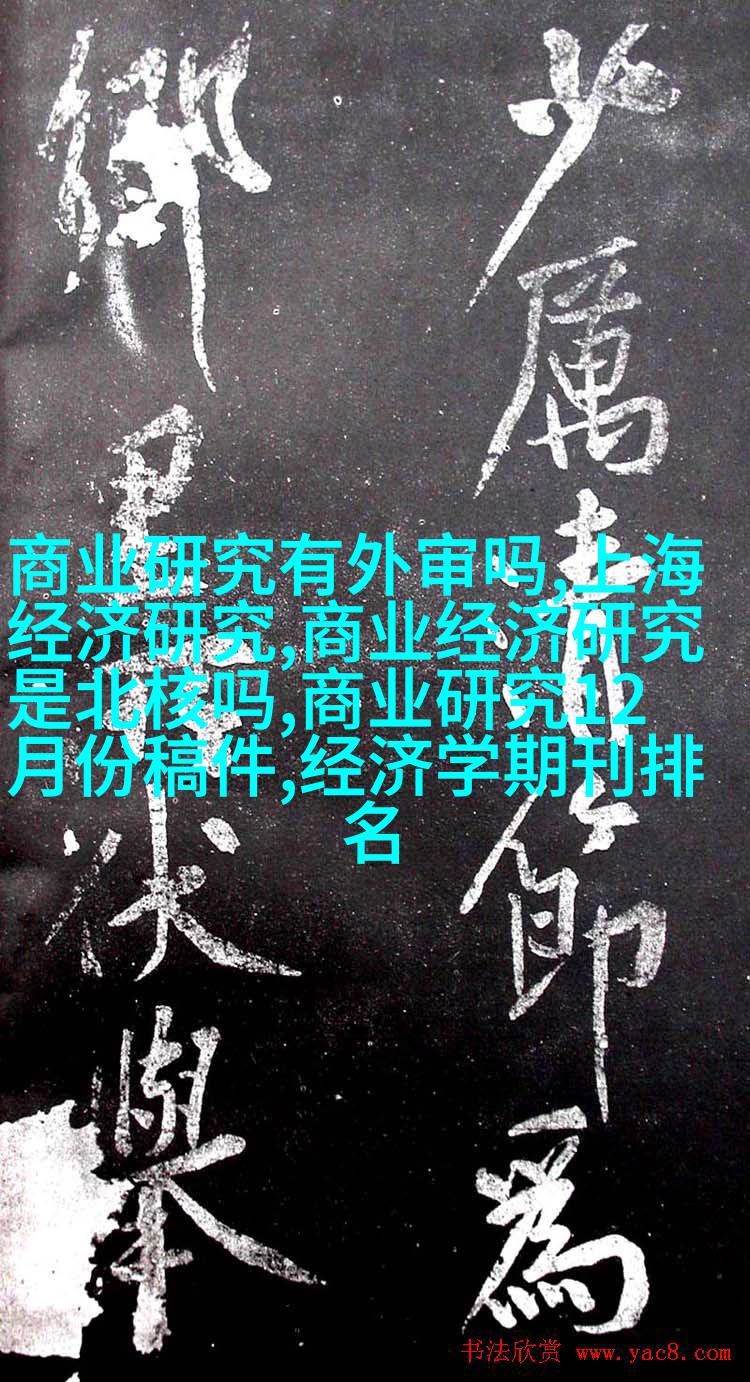 少厲清節為
鄉里伏舉
商业研究有外审吗,上海
经济研究,商业经济研究
是北核吗,商业研究12
月份稿件,经济学期刊排
名
书法欣赏 www.yac8.com